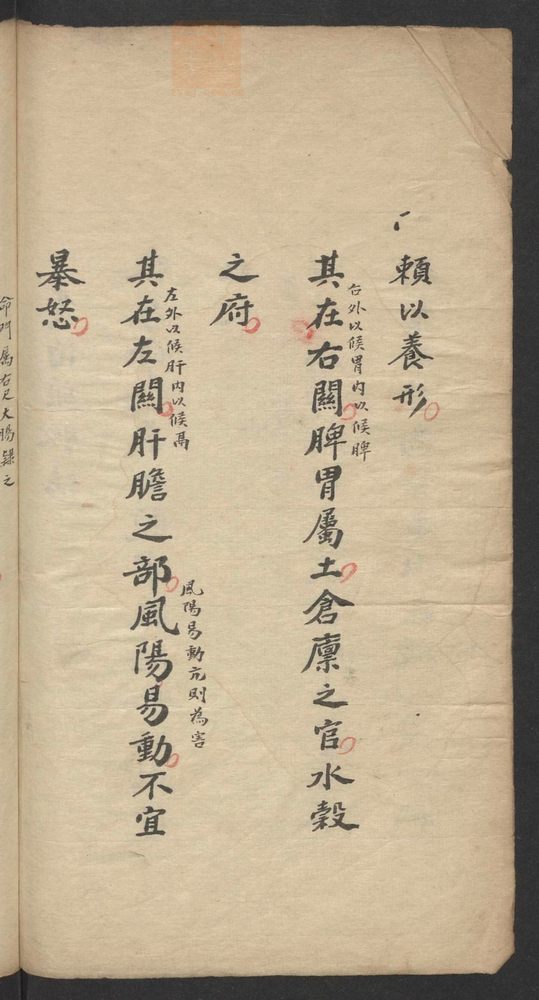 賴以養形
右外以候胃內以候脾
其在右關脾胃屬土倉廩之官水穀
之府
風陽易動亢則為害
左外以候肝內以候鬲
其在左關肝膽之部風陽易動不宜
暴怒
命門屬右尺大腸